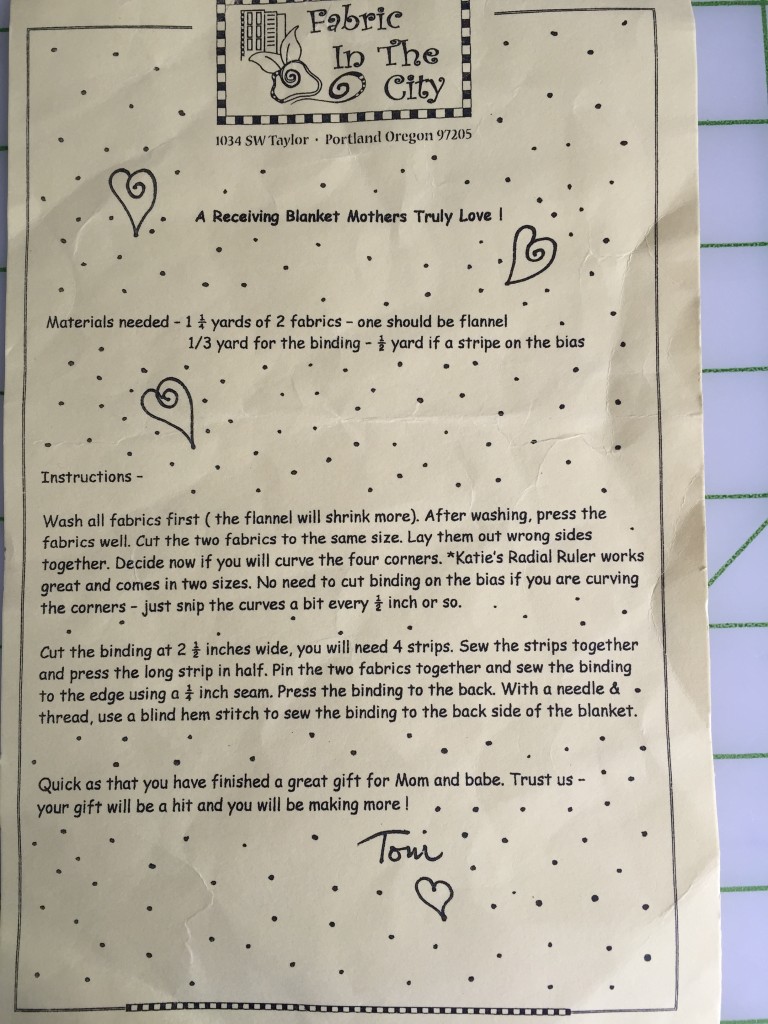 Fabric
In The
City
1034 SW Taylor · Portland Oregon 97205
A Receiving Blanket Mothers Truly Love !
Materials needed - 1 ¼ yards of 2 fabrics - one should be flannel
1/3 yard for the binding - ½ yard if a stripe on the bias
Instructions -
Wash all fabrics first ( the flannel will shrink more). After washing, press the
fabrics well. Cut the two fabrics to the same size. Lay them out wrong sides
together. Decide now if you will curve the four corners. *Katie's Radial Ruler works
great and comes in two sizes. No need to cut binding on the bias if you are curving
the corners - just snip the curves a bit every ½ inch or so.
Cut the binding at 2 ½ inches wide, you will need 4 strips. Sew the strips together
and press the long strip in half. Pin the two fabrics together and sew the binding
to the edge using a ¼ inch seam. Press the binding to the back. With a needle &
thread, use a blind hem stitch to sew the binding to the back side of the blanket.
Quick as that you have finished a great gift for Mom and babe. Trust us -
your gift will be a hit and you will be making more !
Toni